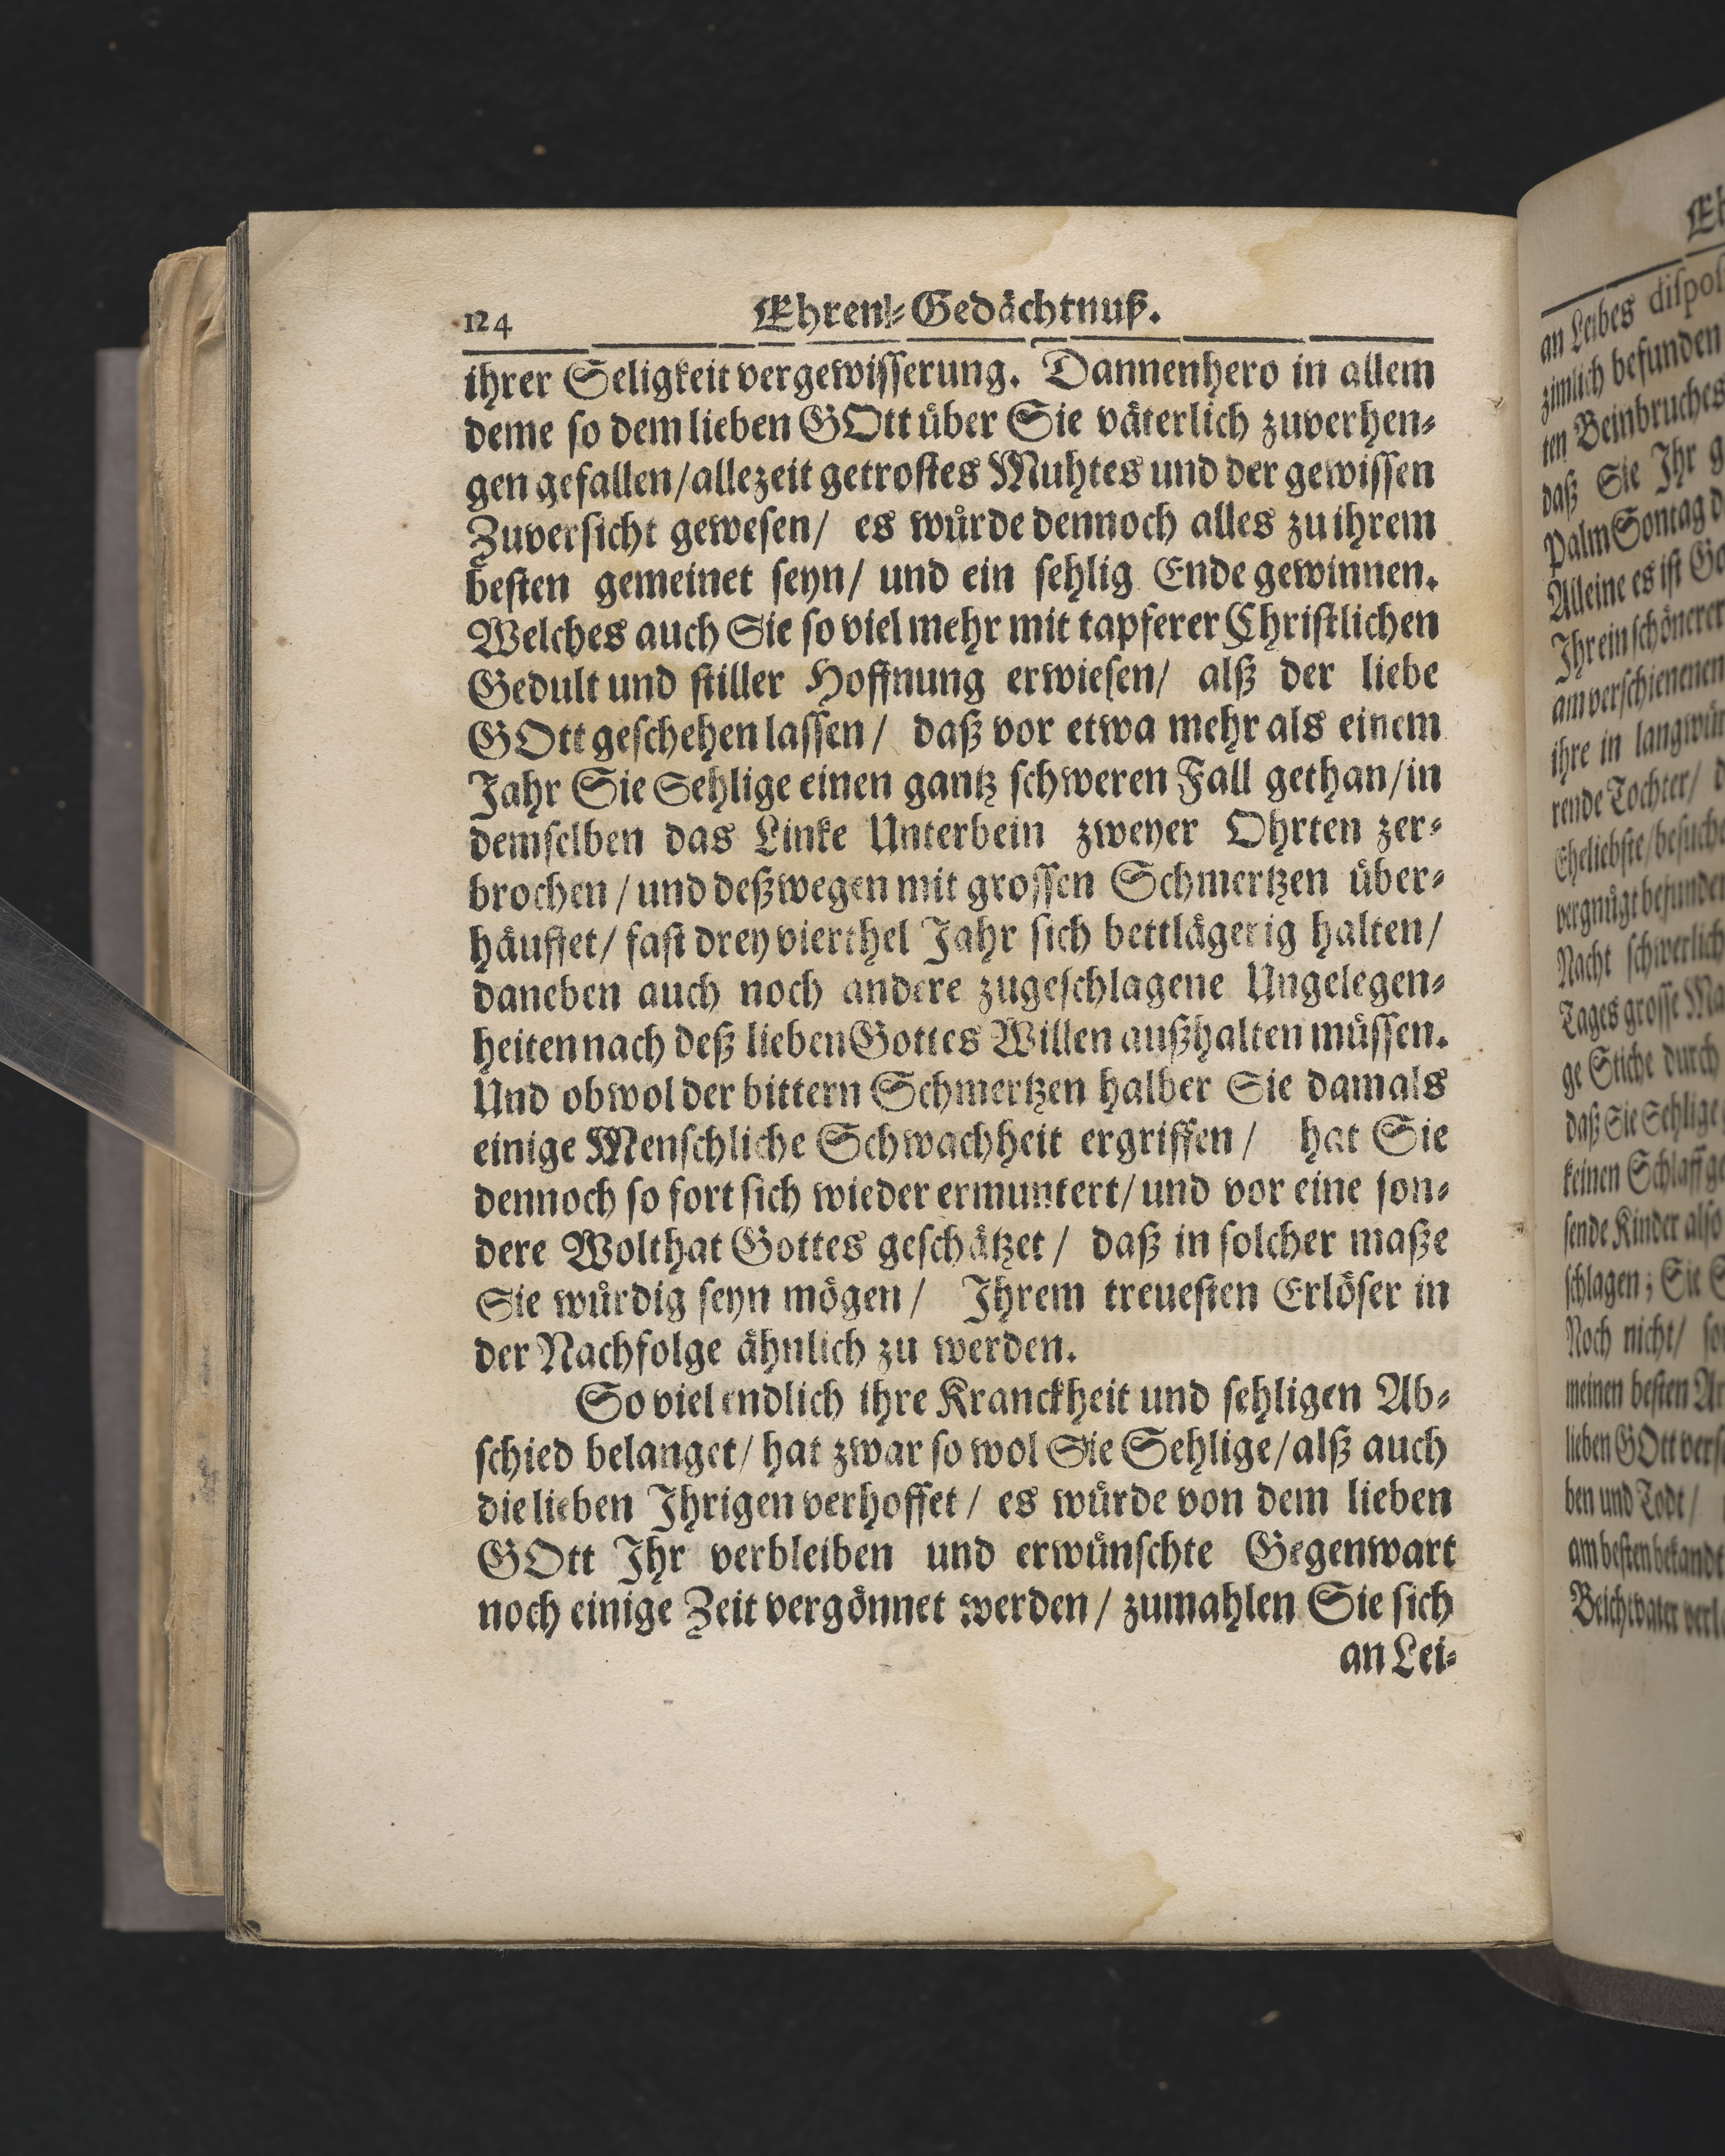 124 Ehren-Gedächtnuß.
ihrer Seligkeit vergewisserung. Dannenhero in allem
deme so dem lieben GOtt über Sie väterlich zuverhen-
gen gefallen/ allezeit getrostes Muhtes und der gewissen
Zuversicht gewesen/ es würde dennoch alles zu ihrem
besten gemeinet seyn/ und ein sehlig Ende gewinnen.
Welches auch Sie so viel mehr mit tapferer Christlichen
Gedult und stiller Hoffnung erwiesen/ alß der liebe
GOtt geschehen lassen/ daß vor etwa mehr als einem
Jahr Sie Sehlige einen gantz schweren Fall gethan/ in
demselben das Linke Unterbein zweyer Ohrten zer-
brochen/ und deßwegen mit grossen Schmertzen über-
häuffet/ fast drey vierthel Jahr sich bettlägerig halten/
daneben auch noch andere zugeschlagene Ungelegen-
heiten nach deß lieben Gottes Willen außhalten müssen.
Und obwol der bittern Schmertzen halber Sie damals
einige Menschliche Schwachheit ergriffen/ hat Sie
dennoch so fort sich wieder ermuntert/ und vor eine son-
dere Wolthat Gottes geschätzet/ daß in solcher maße
Sie würdig seyn mögen/ Ihrem treuesten Erlöser in
der Nachfolge ähnlich zu werden.
So viel endlich ihre Kranckheit und sehligen Ab-
schied belanget/ hat zwar so wol Sie Sehlige/ alß auch
die lieben Ihrigen verhoffet/ es würde von dem lieben
GOtt Ihr verbleiben und erwünschte Gegenwart
noch einige Zeit vergönnet werden/ zumahlen Sie sich
an Lei-
an Leibes
zimlich befunden
ten Beinbruches
daß Sie Ihr
Palm Sontag
Alleine es ist
Ihr ein schönerer
am verschienenen
ihre in
rende Tochter/
Eheliebste/
vergnügt
Nacht schwerlich
Tages grosse
ge Stiche durch
daß Sie Sehlige
keinen Schlaff
sende Kinder also
schlagen; Sie
Noch nicht/
meinen besten
lieben GOtt
ben und Todt/
am besten bekandt
Beichtvater